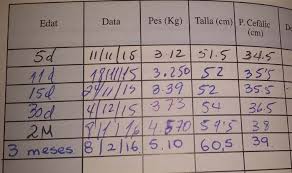 Edat Data Pes (Kg) Talla (cm) P. Cefàlic (cm)
5d 11/11/15 3.12 51.5 34.5
11d 18/11/15 3.250 52 35'5
15d 24/11/15 3.39 52 35.5
30d 4/12/15 3.73 54 36.5
2M 8/1/16 4.570 57'5 38
3 meses 8/2/16 5.10 60,5 39